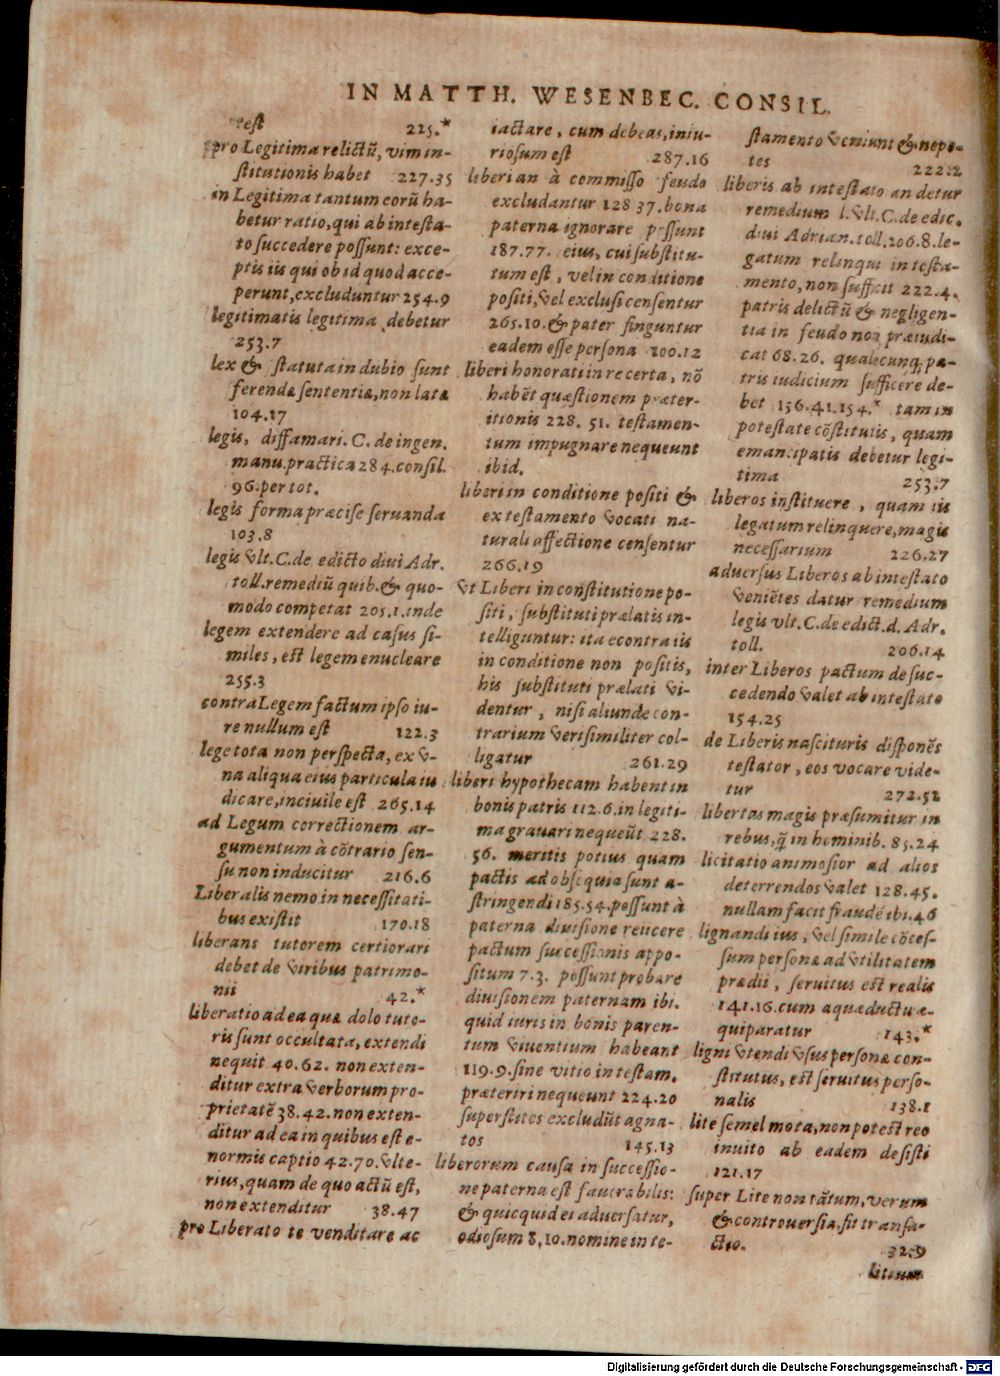 IN MATTH. WESENBEC. CONSIL.
est 225.*
pro Legitima relictũ, vim in-
stitutionis habet 227.35
in Legitima tantum eorũ ha-
betur ratio, qui ab intesta-
to succedere possunt: exce-
ptis iis qui ob id quod acce-
perunt, excluduntur 254.9
legitimatis legitima debetur
253.7
lex & statuta in dubio sunt
ferendæ sententiæ, non latæ
104.17
legis, diffamari. C. de ingen.
manu. practica 284. consil.
96. per tot.
legis forma præcise seruanda
103.8
legis vlt. C. de edicto diui Adr.
toll. remediũ quib. & quo-
modo competat 205.1. inde
legem extendere ad casus si-
miles, est legem enucleare
255.3
contra Legem factum ipso iu-
re nullum est 122.3
lege tota non perspecta, ex v-
na aliqua eius particula iu
dicare, inciuile est 265.14
ad Legum correctionem ar-
gumentum à cõtrario sen-
su non inducitur 216.6
Liberalis nemo in necessitati-
bus existit 170.18
liberans tutorem certiorari
debet de viribus patrimo-
nii 42.*
liberatio ad ea quæ dolo tuto-
ris sunt occultata, extendi
nequit 40.62. non exten-
ditur extra verborum pro-
prietatẽ 38.42. non exten-
ditur ad ea in quibus est e-
normis captio 42.70. vlte-
rius, quam de quo actũ est,
non extenditur 38.47
pro Liberato te venditare ac
iactare, cum debeas, iniu-
riosum est 287.16
liberi an à commisso feudo
excludantur 128 37. bona
paterna ignorare possunt
187.77. eius, cui substitu-
tum est, vel in conditione
positi, vel exclusi censentur
265.10. & pater finguntur
eadem esse persona 100.12
liberi honorati in re certa, nõ
habẽt quæstionem præter-
itionis 228. 51. testamen-
tum impugnare nequeunt
ibid.
liberi in conditione positi &
ex testamento vocati na-
turali affectione censentur
266.19
vt Liberi in constitutione po-
siti, substituti prælatis in-
telliguntur: ita econtra iis
in conditione non positis,
his substituti prælati vi-
dentur, nisi aliunde con-
trarium verisimiliter col-
ligatur 261.29
liberi hypothecam habent in
bonis patris 112.6. in legiti-
ma grauari nequeũt 228.
56. meritis potius quam
pactis ad obsequia sunt a-
stringendi 185.54. possunt à
paterna diuisione reiicere
pactum successionis appo-
situm 7.3. possunt probare
diuisionem paternam ibi.
quid iuris in bonis paren-
tum viuentium habeant
119.9. sine vitio in testam.
præteriri nequeunt 224.20
superstites excludũt agna-
tos 145.13
liberorum causa in successio-
ne paterna est fauorabilis:
& quicquid ei aduersatur,
odiosum 8,10. nomine in te-
stamento veniunt & nepo-
tes 222.2
liberis ab intestato an detur
remedium l. vlt. C. de edic.
diui Adrian. toll. 206.8. le-
gatum relinqui in testa-
mento, non sufficit 222.4.
patris delictũ & negligen-
tia in feudo non præiudi-
cat 68.26. qualecunq; pa-
tris iudicium sufficere de-
bet 156.41.154.* tam in
potestate cõstitutis, quam
emancipatis debetur legi-
tima 253.7
liberos instituere, quam iis
legatum relinquere, magis
necessarium 226.27
aduersus Liberos ab intestato
veniẽtes datur remedium
legis vlt. C. de edict. d. Adr.
toll. 206.14
inter Liberos pactum de suc-
cedendo valet ab intestato
154.25
de Liberis nascituris disponẽs
testator, eos vocare vide-
tur 272.52
libertas magis præsumitur in
rebus, q̃ in hominib. 85.24
licitatio animosior ad alios
deterrendos valet 128.45.
nullam facit fraudẽ ibi. 46
lignandi ius, vel simile cõces-
sum personæ ad vtilitatem
prædii, seruitus est realis
141.16. cum aquæductu æ-
quiparatur 143.*
ligni vtendi vsus personæ con-
stitutus, est seruitus perso-
nalis 138.1
lite semel mota, non potest reo
inuito ab eadem desisti
121.17
super Lite non tãtum, verum
& controuersia, fit transa-
ctio. 32.9
litium
Digitalisierung gefördert durch die Deutsche Forschungsgemeinschaft - DFG